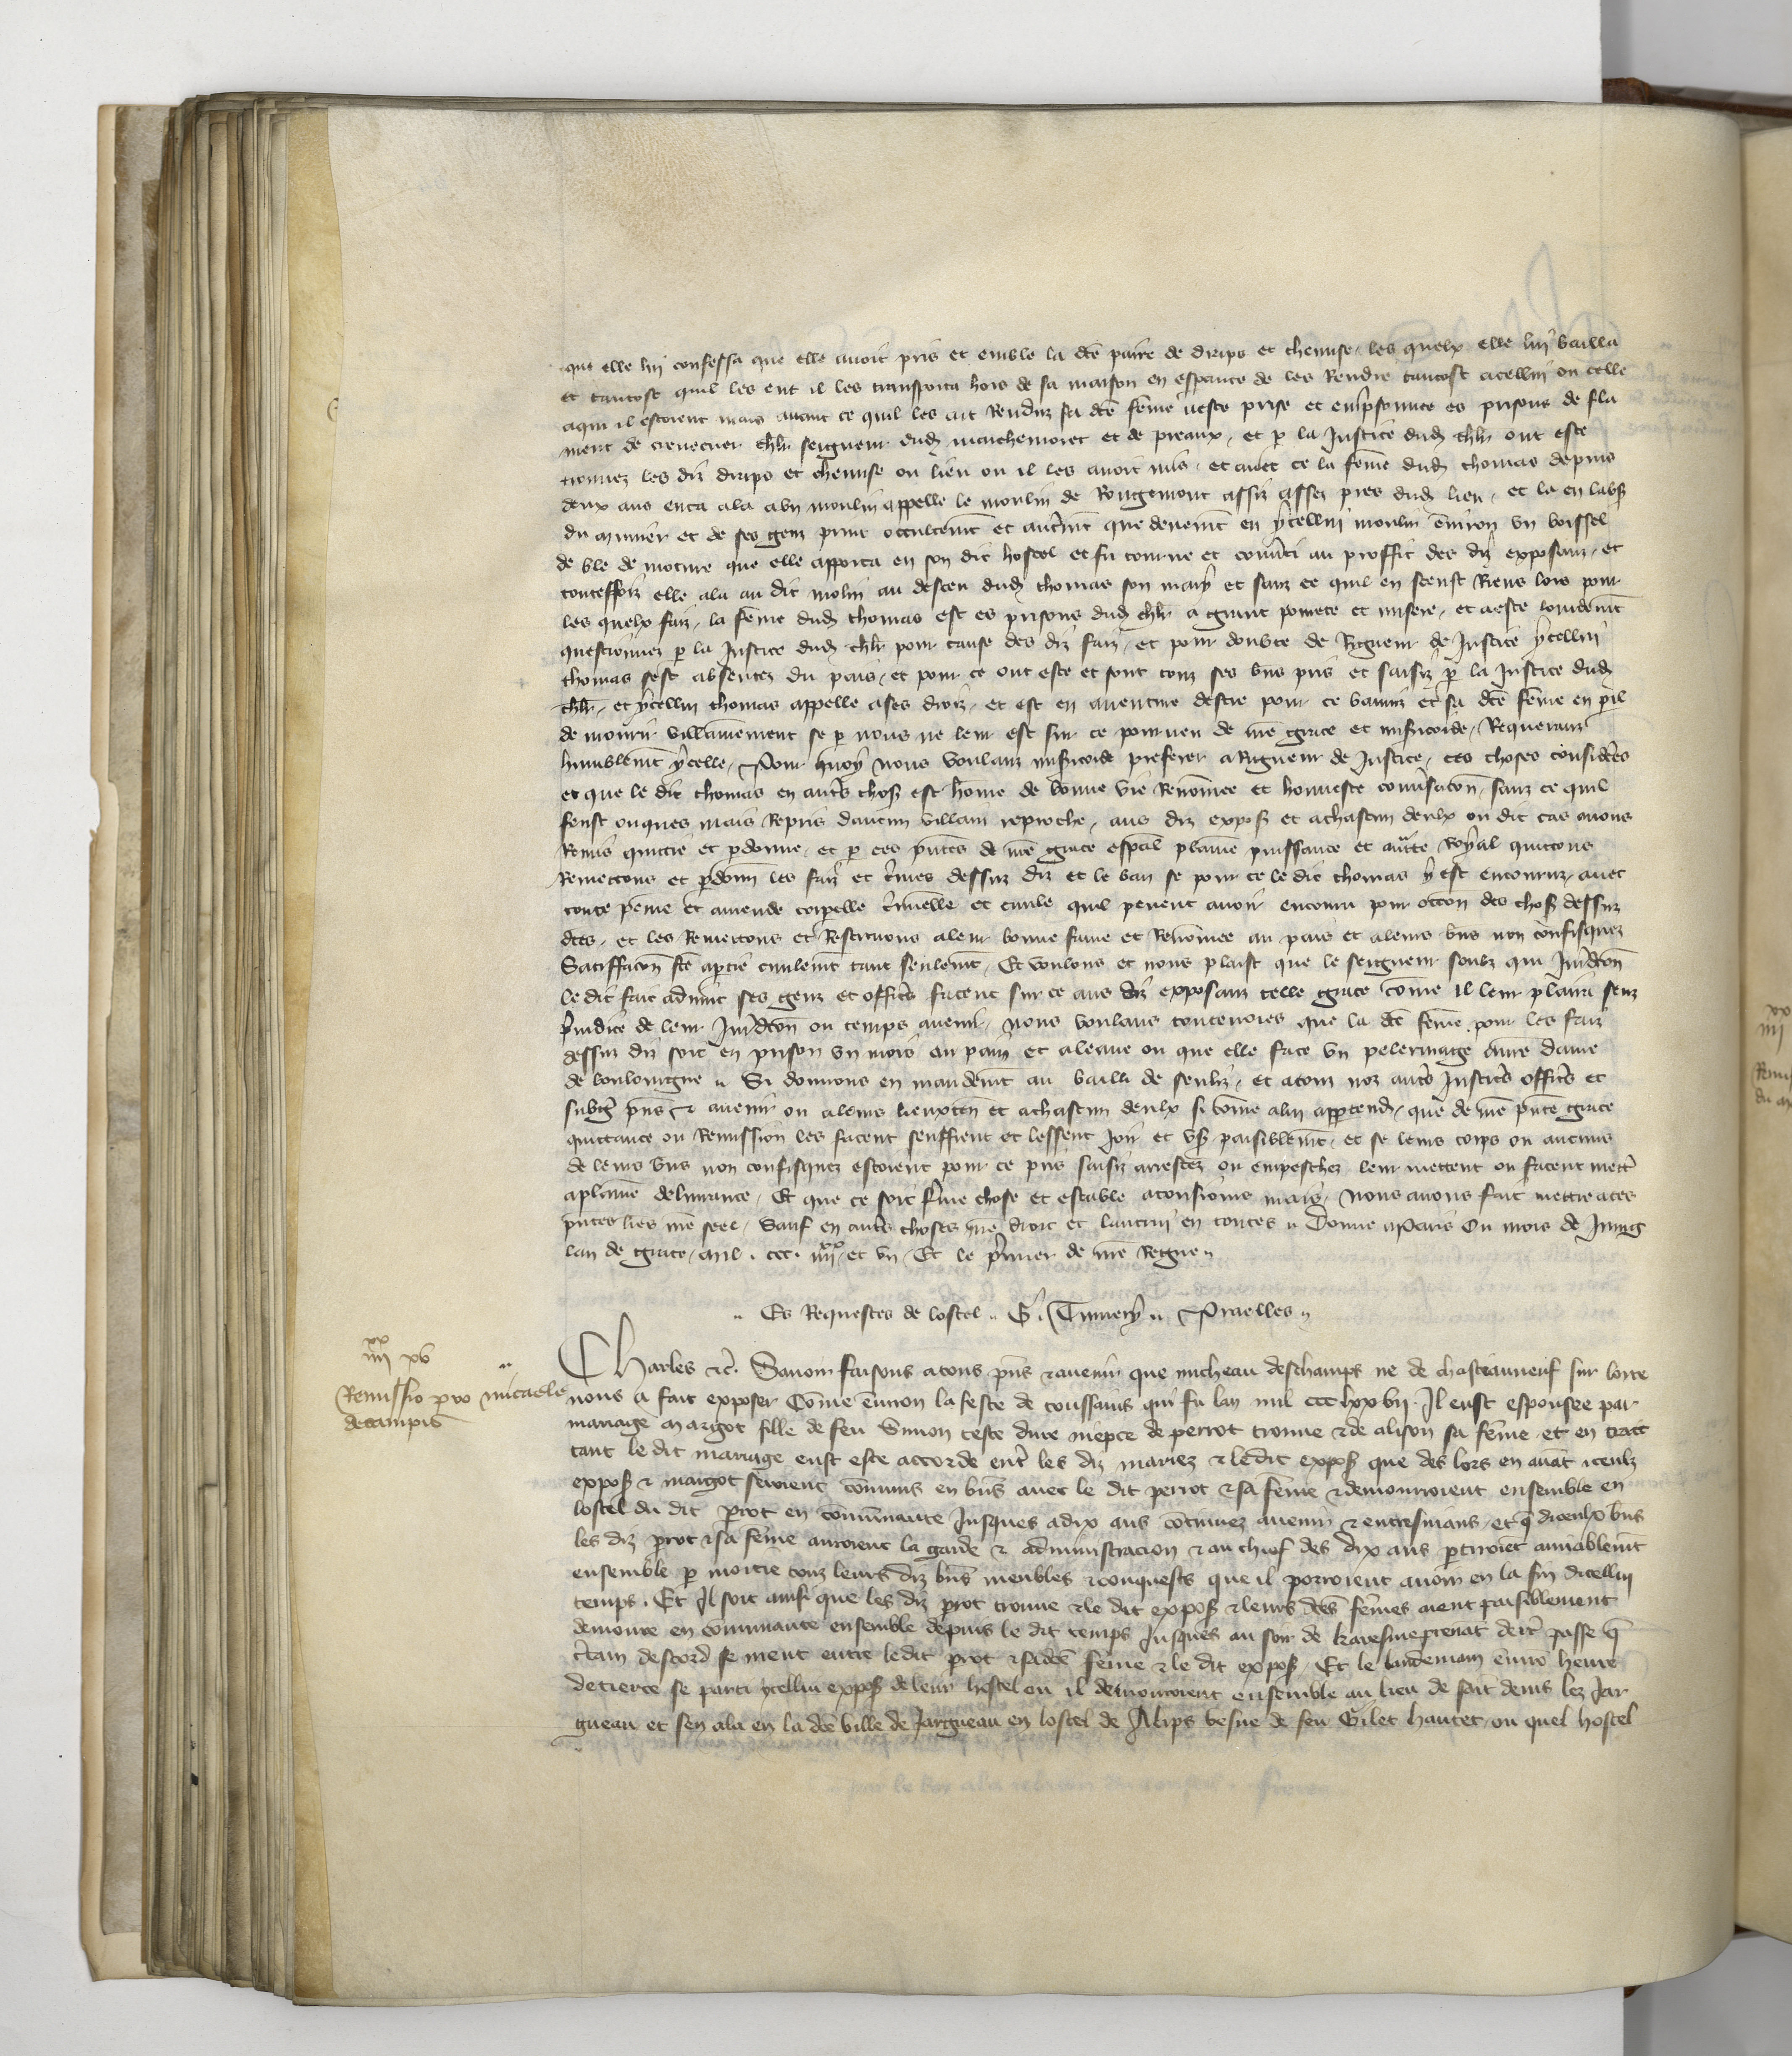 que elle lui confessa que elle avoit pris et emble la dcẽ paire de draps et chemise, les quelx elle lui bailla
et tantost quil les eut il les transporta hors de sa maison en espance de les Rendre tantost acellui ou celle
aqui il estoient mais avant ce quil les ait Renduz sa dcẽ fẽme a este prise et emprisonnee es prisons de fla
ment de crevecuer chlr seigneur dud et de preaux, et p la Justice dud chlr ont este
trouvez les diz draps et chemise ou lieu ou il les avoit mis, et avec ce la fẽme dud thomas depuis
deux ans enca ala a un moulin appelle le moulin de Rougemont assiz assez pres dud lieu, et la en labs
du munier et de ses genz prinst occultemt et autremt que deuemt en ycellui moulin environ un boissel
de ble de mouture que elle apporta en son dit hostel et fu tourne et converti au proffit des diz exposans, et
toutesfoiz elle ala au dit molin au desceu dud thomas son mary et sanz ce quil en sceust Riens lors pour
les quelx faiz, la fẽme dud thomas est es prisons dud chlr a grant povrete et misere, et a este
questionnee p la Justice dud chlr pour cause des diz faiz, et pour doubte de Rigueur de Justice ycellui
thomas sest absentez du pais, et pour ce ont este et sont touz ses bns pris et saisiz p la Justice dud
chlr, et ycellui thomas appelle a ses droiz, et est en aventure destre pour ce banniz et sa dcẽ fẽme en pil
de mourir villainnement se p nous ne leur est sur ce pourveu de nrẽ grace et misicorde, Requerant
humblemt ycelle, Pour quoy nous voulanz misicorde preferer a Rigueur de Justice, ces choses considerees
et que le dit thomas en autrs chos est hõme de bonne vie Renõmee et honneste convsacõn, sanz ce quil
feust onques mais Repris daucun villain reproche, aus diz expos et a chascun deulx ou dit cas avons
Remis quictie et pdonne, et p ces pntes de nrẽ grace espcal plaine puissance et aucte Royal quictons
Remettons et pdonn les faiz et crimes dessus diz et le ban se pour ce le dit thomas y est encouruz, avec
toute peine et amende corpelle crimelle et civile quil peuent avoir encouru pour occon des chos dessuz
dces, et les Remettons et Restituons a leur bonne fame et Renõmee au pais et a leurs bns non confisquez
Satiffacon fcẽ a partie civilemt tant seulemt, Et voulons et nous plaist que le seigneur soubz qui Juridcon
le dit fait advint ses genz et officrs facent sur ce aus diz exposans telle grace cõme il leur plaira senz
prejudice de leur Juridcon ou temps avenir, nous voulans toutevoies que la dcẽ fẽme pour les faiz
dessuz diz soit en prison un mois au pain et a leaue ou que elle face un pelerinage a nre dame
de bouloingne Si donnons en mandemt au bailli de senliz, et a touz noz autrs Justicrs officrs et
subgz pns et avenir ou a leurs lieuxten et a chascun deulx si cõme a lui appertendra, que de nrẽ pnte grace
quictance ou Remission les facent seuffrent et lessent Joir et us paisiblemt, et se leurs corps ou aucuns
de leurs bns non confisquez estoient pour ce pris saisiz arrestez ou empeschez leur mettent ou facent mettr
a plaine delivrance, Et que ce soit ferme chose et estable a tousjours mais, Nous avons fait mettre a ces
pntes lres nrẽ seel, Sauf en autrs choses nrẽ droit et lautrui en toutes Donne a Paris Ou mois de Juing
lan de grace mil. ccc. iiiixx et un Et le premier de nrẽ Regne
Es Requestes de lostel G. Praelles
iiiixx xv
Remissio pro micaele
decampis
Charles etc. Savoir faisons a tous pns et avenir que micheau deschamps ne de chasteauneuf sur loire
nous a fait exposer Cõme environ la feste de toussains qui fu lan mil ccc lxxvii Il eust espousee par
mariage margot fille de feu Simon teste dure niepce de perrot tronne et de alison sa fẽme et en trait
tant le dit mariage eust este accorde entr les diz mariez et le dit expos que des lors en avãt iceulz
expos et margot seroient cõmuns en bns avec le dit perrot et sa fẽme et demourroient ensemble en
lostel du dit prot en cõmunaute Jusques a dix ans cõtinuez avenir et entresuians, et q diceulx bns
les diz prot et sa fẽme auroient la garde et administracion et au chief des dix ans ptiroiet amiablemt
ensemble p moitie touz leurs diz bns meubles et conquests que il porroient avoir en la fin dicellui
temps. Et Il soit ainsi que les diz prot tronne et le dit expos et leurs dces fẽmes aient paisiblement
demoure en communaute ensemble depuis le dit temps Jusques au soir de karesmeprenãt derr passe q
crtain descord se ment entre le dit prot et sa dcẽ fẽme et le dit expos, Et le landemain environ heure
de tierce se parti ycellui expos de leur hostel ou il demouroient ensemble au lieu de saĩt denis lez Jar
gueau et sen ala en la dcẽ ville de Jargueau en lostel de Alips vesve de feu Gilet hautet, ou quel hostel